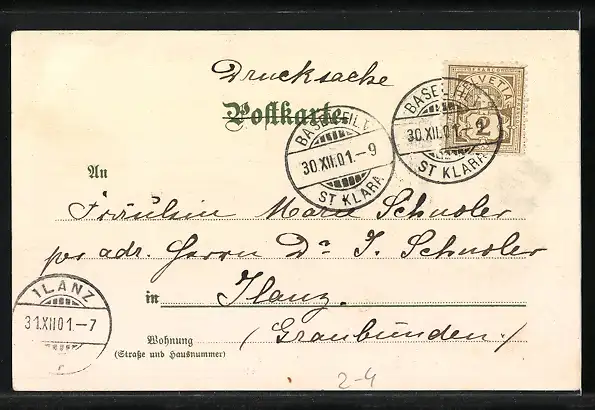 Drucksache
Postkarte
HELVETIA
FRANCO
2
BASEL
30.XII.01.-9
ST KLARA
BASEL
30.XII.01.-9
ST KLARA
An
Fräulein Marie Schusler
per adr. Herrn Dr J. Schusler
ILANZ
31.XII.01.-7
in Ilanz.
Wohnung (Graubünden.)
(Straße und Hausnummer)
2-4